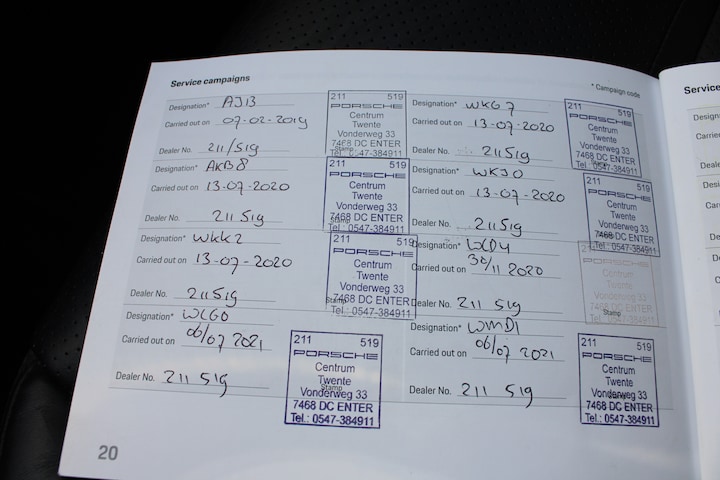 Service campaigns
* Campaign code
Designation* AJ13
Carried out on 07-02-2019
Dealer No. 211/519
211 519
PORSCHE
Centrum
Twente
Vonderweg 33
7468 DC ENTER
Stamp
Tel.: 0547-384911
Designation* WKG7
Carried out on 13-07-2020
Dealer No. 211519
211 519
PORSCHE
Centrum
Twente
Vonderweg 33
7468 DC ENTER
Tel.: 0547-384911
Designation* AKB8
Carried out on 13-07-2020
Dealer No. 211 519
211 519
PORSCHE
Centrum
Twente
Vonderweg 33
Stamp
7468 DC ENTER
Tel.: 0547-384911
Designation* WKJ0
Carried out on 13-07-2020
Dealer No. 211519
211 519
PORSCHE
Centrum
Twente
Vonderweg 33
7468 DC ENTER
Tel.: 0547-384911
Designation* WKK2
Carried out on 13-07-2020
Dealer No. 211519
211 519
PORSCHE
Centrum
Twente
Vonderweg 33
Stamp
7468 DC ENTER
Tel.: 0547-384911
Designation* WLD4
Carried out on 30/11 2020
Dealer No. 211 519
PORSCHE
Centrum
Twente
Vonderweg 33
7468 DC ENTER
Stamp
Designation* WLG0
Carried out on 06/07 2021
Dealer No. 211 519
211 519
PORSCHE
Centrum
Twente
Stamp
Vonderweg 33
7468 DC ENTER
Tel.: 0547-384911
Designation* WMD1
Carried out on 06/07 2021
Dealer No. 211 519
211 519
PORSCHE
Centrum
Twente
Vonderweg 33
7468 DC ENTER
Tel.: 0547-384911
20
Service